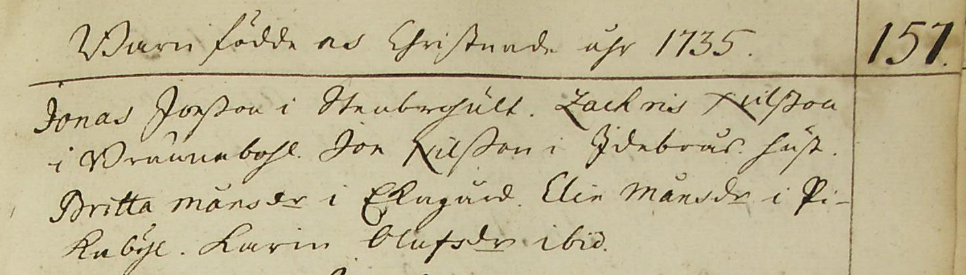 Barn födde oc Christnade åhr 1735. 157.
Jonas Joniſson i Stenberghult. Zachris Nilſson
i Brännabohl. Jon Nilſson i Idebrås. hust.
Britta Månsdr i Ekagård. Elin Månsdr i Pi-
kaböhl. Karin Olufsdr ibid.